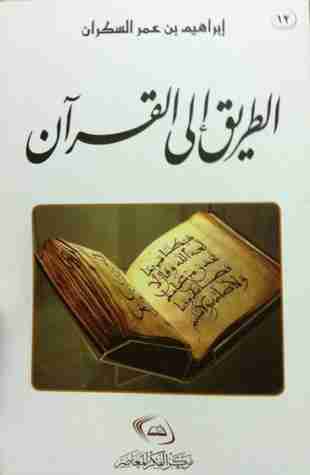 ١٢
إبراهيم بن عمر السكران
الطريق إلى القرآن
مركز الفكر المعاصر